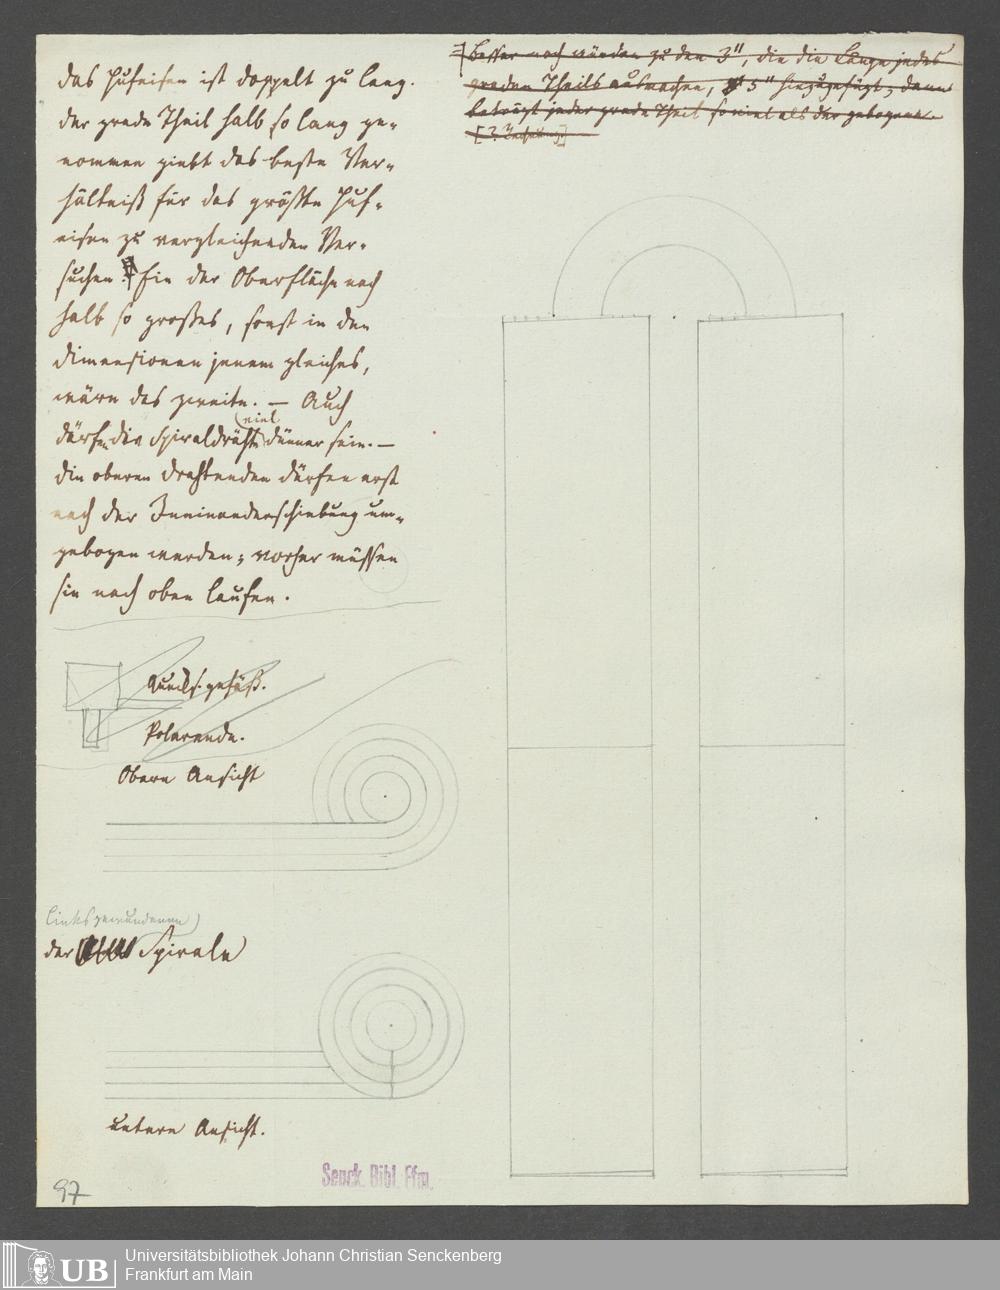 das Hufeisen ist doppelt zu lang.
der grade Theil halb so lang ge-
nommen giebt das beste Ver-
hältniß für das größte Huf-
eisen zu vergleichenden Ver-
suchen. Ein der Oberfläche nach
halb so großes, sonst in den
dimensionen jenem gleiches,
wäre das zweite. — Auch
viel
dürfen die Spiraldrähte dünner sein. —
die oberen Drahtenden dürfen erst
nach der Ineinanderschiebung um-
gebogen werden; vorher müssen
sie nach oben laufen.
Quecks. gefäß.
Polarende.
Obere Ansicht
linksgewundenen
der Spirale
untere Ansicht.
97
besser noch würden zu den 3", die die Länge jedes
graden Theils ausmachen, 5" hinzugefügt; dann
beträgt jeder grade Theil so viel als der gebogene.
[? Zeichnung]
Senck. Bibl. Ffm.
UB
Universitätsbibliothek Johann Christian Senckenberg
Frankfurt am Main